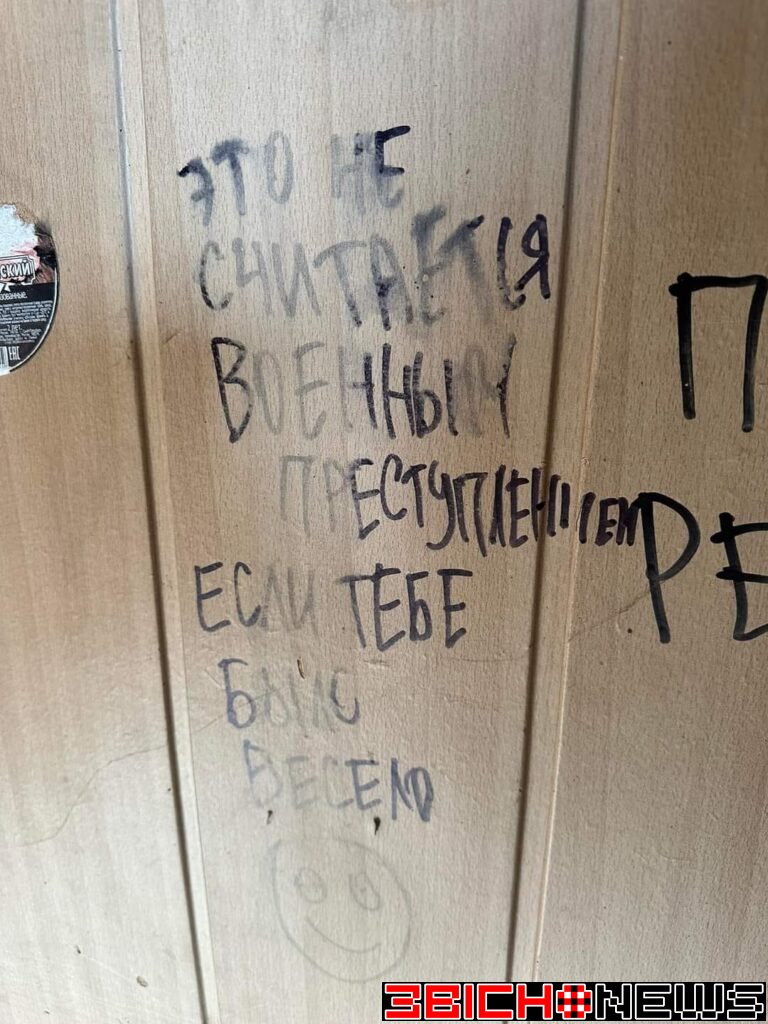 ЭТО НЕ
СЧИТАЕТСЯ
ВОЕННЫМ
ПРЕСТУПЛЕНИЕМ
ЕСЛИ ТЕБЕ
БЫЛО
ВЕСЕЛО
П
РЕ
СКИЙ
EAC
ЗВІСНО NEWS